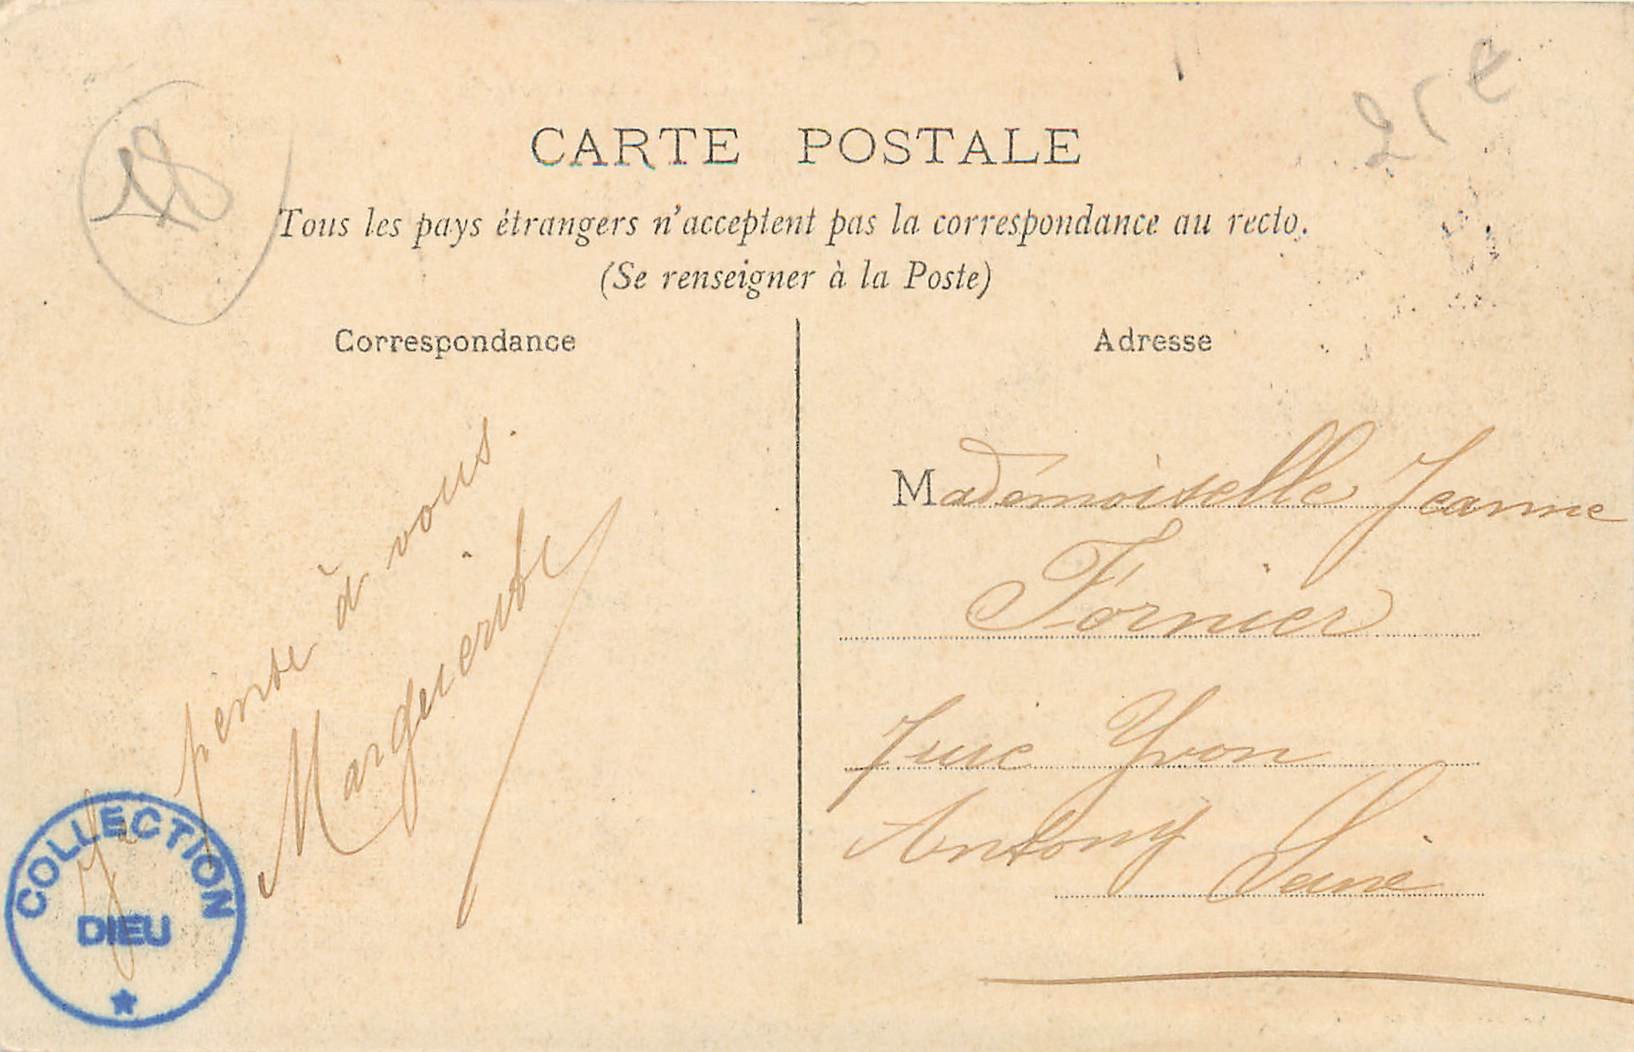 CARTE POSTALE
Tous les pays étrangers n'acceptent pas la correspondance au recto.
(Se renseigner à la Poste)
Correspondance
Adresse
Je pense à vous.
Marguerite
Mademoiselle Jeanne
Fornier
rue Yvon
Antony
Seine
COLLECTION
DIEU